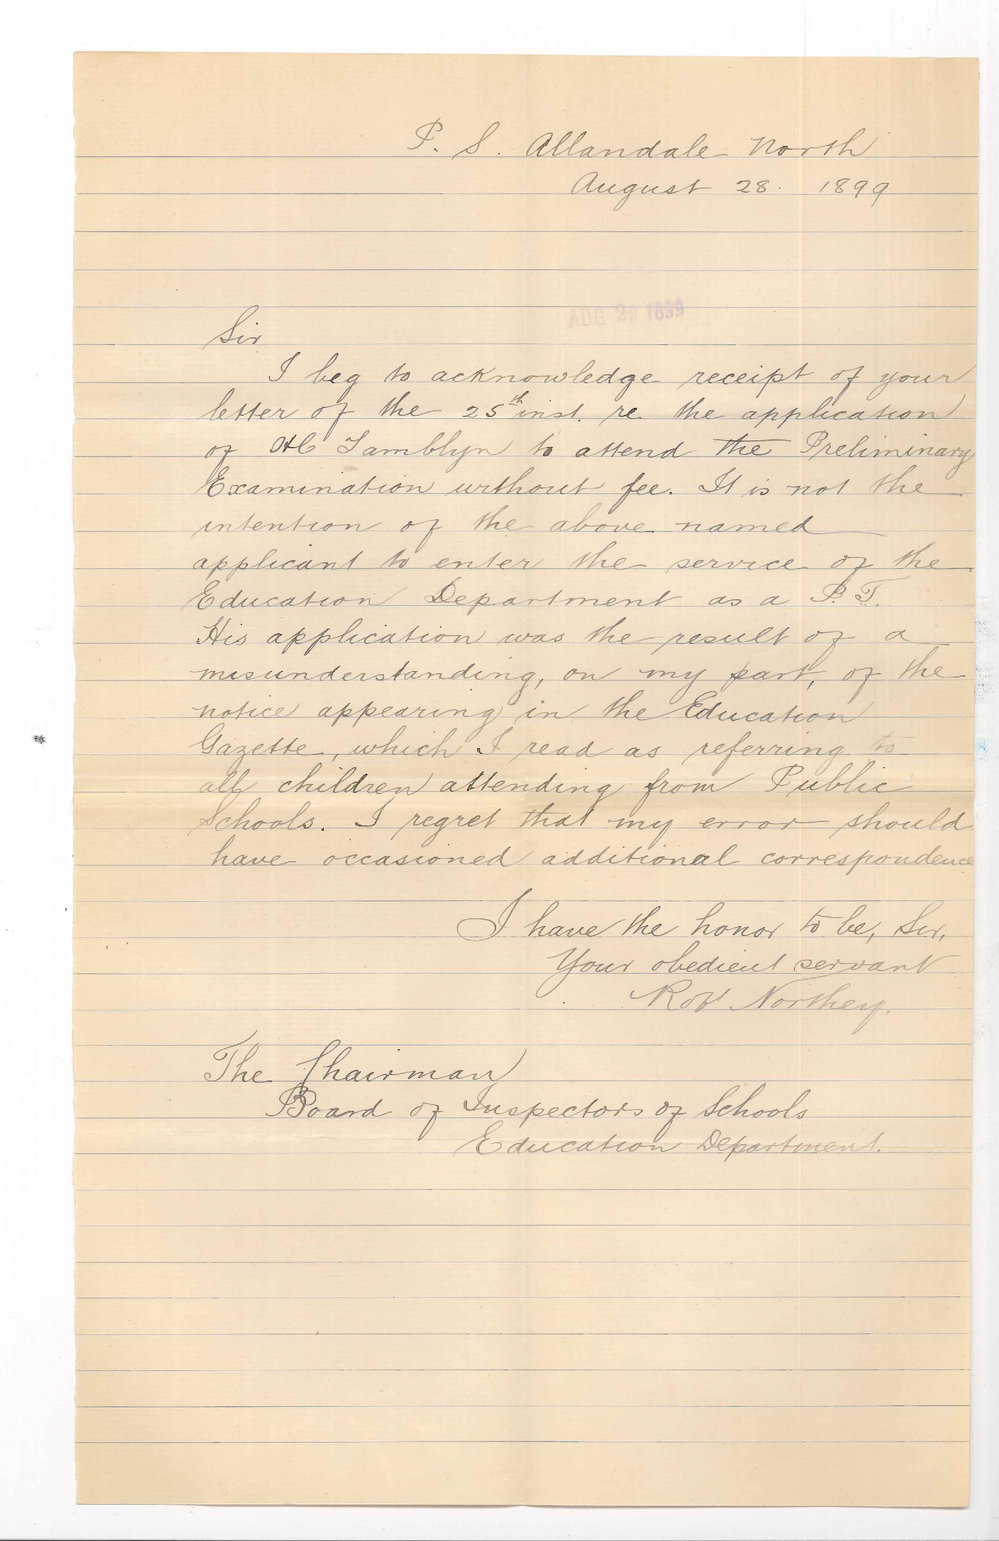 P. S. Allandale North
August 28. 1899
AUG 29 1899
Sir
I beg to acknowledge receipt of your
letter of the 25th inst. re the application
of H C Tamblyn to attend the Preliminary
Examination without fee. It is not the
intention of the above named
applicant to enter the service of the
Education Department as a P. T.
His application was the result of a
misunderstanding, on my part, of the
notice appearing in the Education
Gazette, which I read as referring to
all children attending from Public
Schools. I regret that my error should
have occasioned additional correspondence
I have the honor to be, Sir,
Your obedient servant
Robt Northey.
The Chairman
Board of Inspectors of Schools
Education Department.